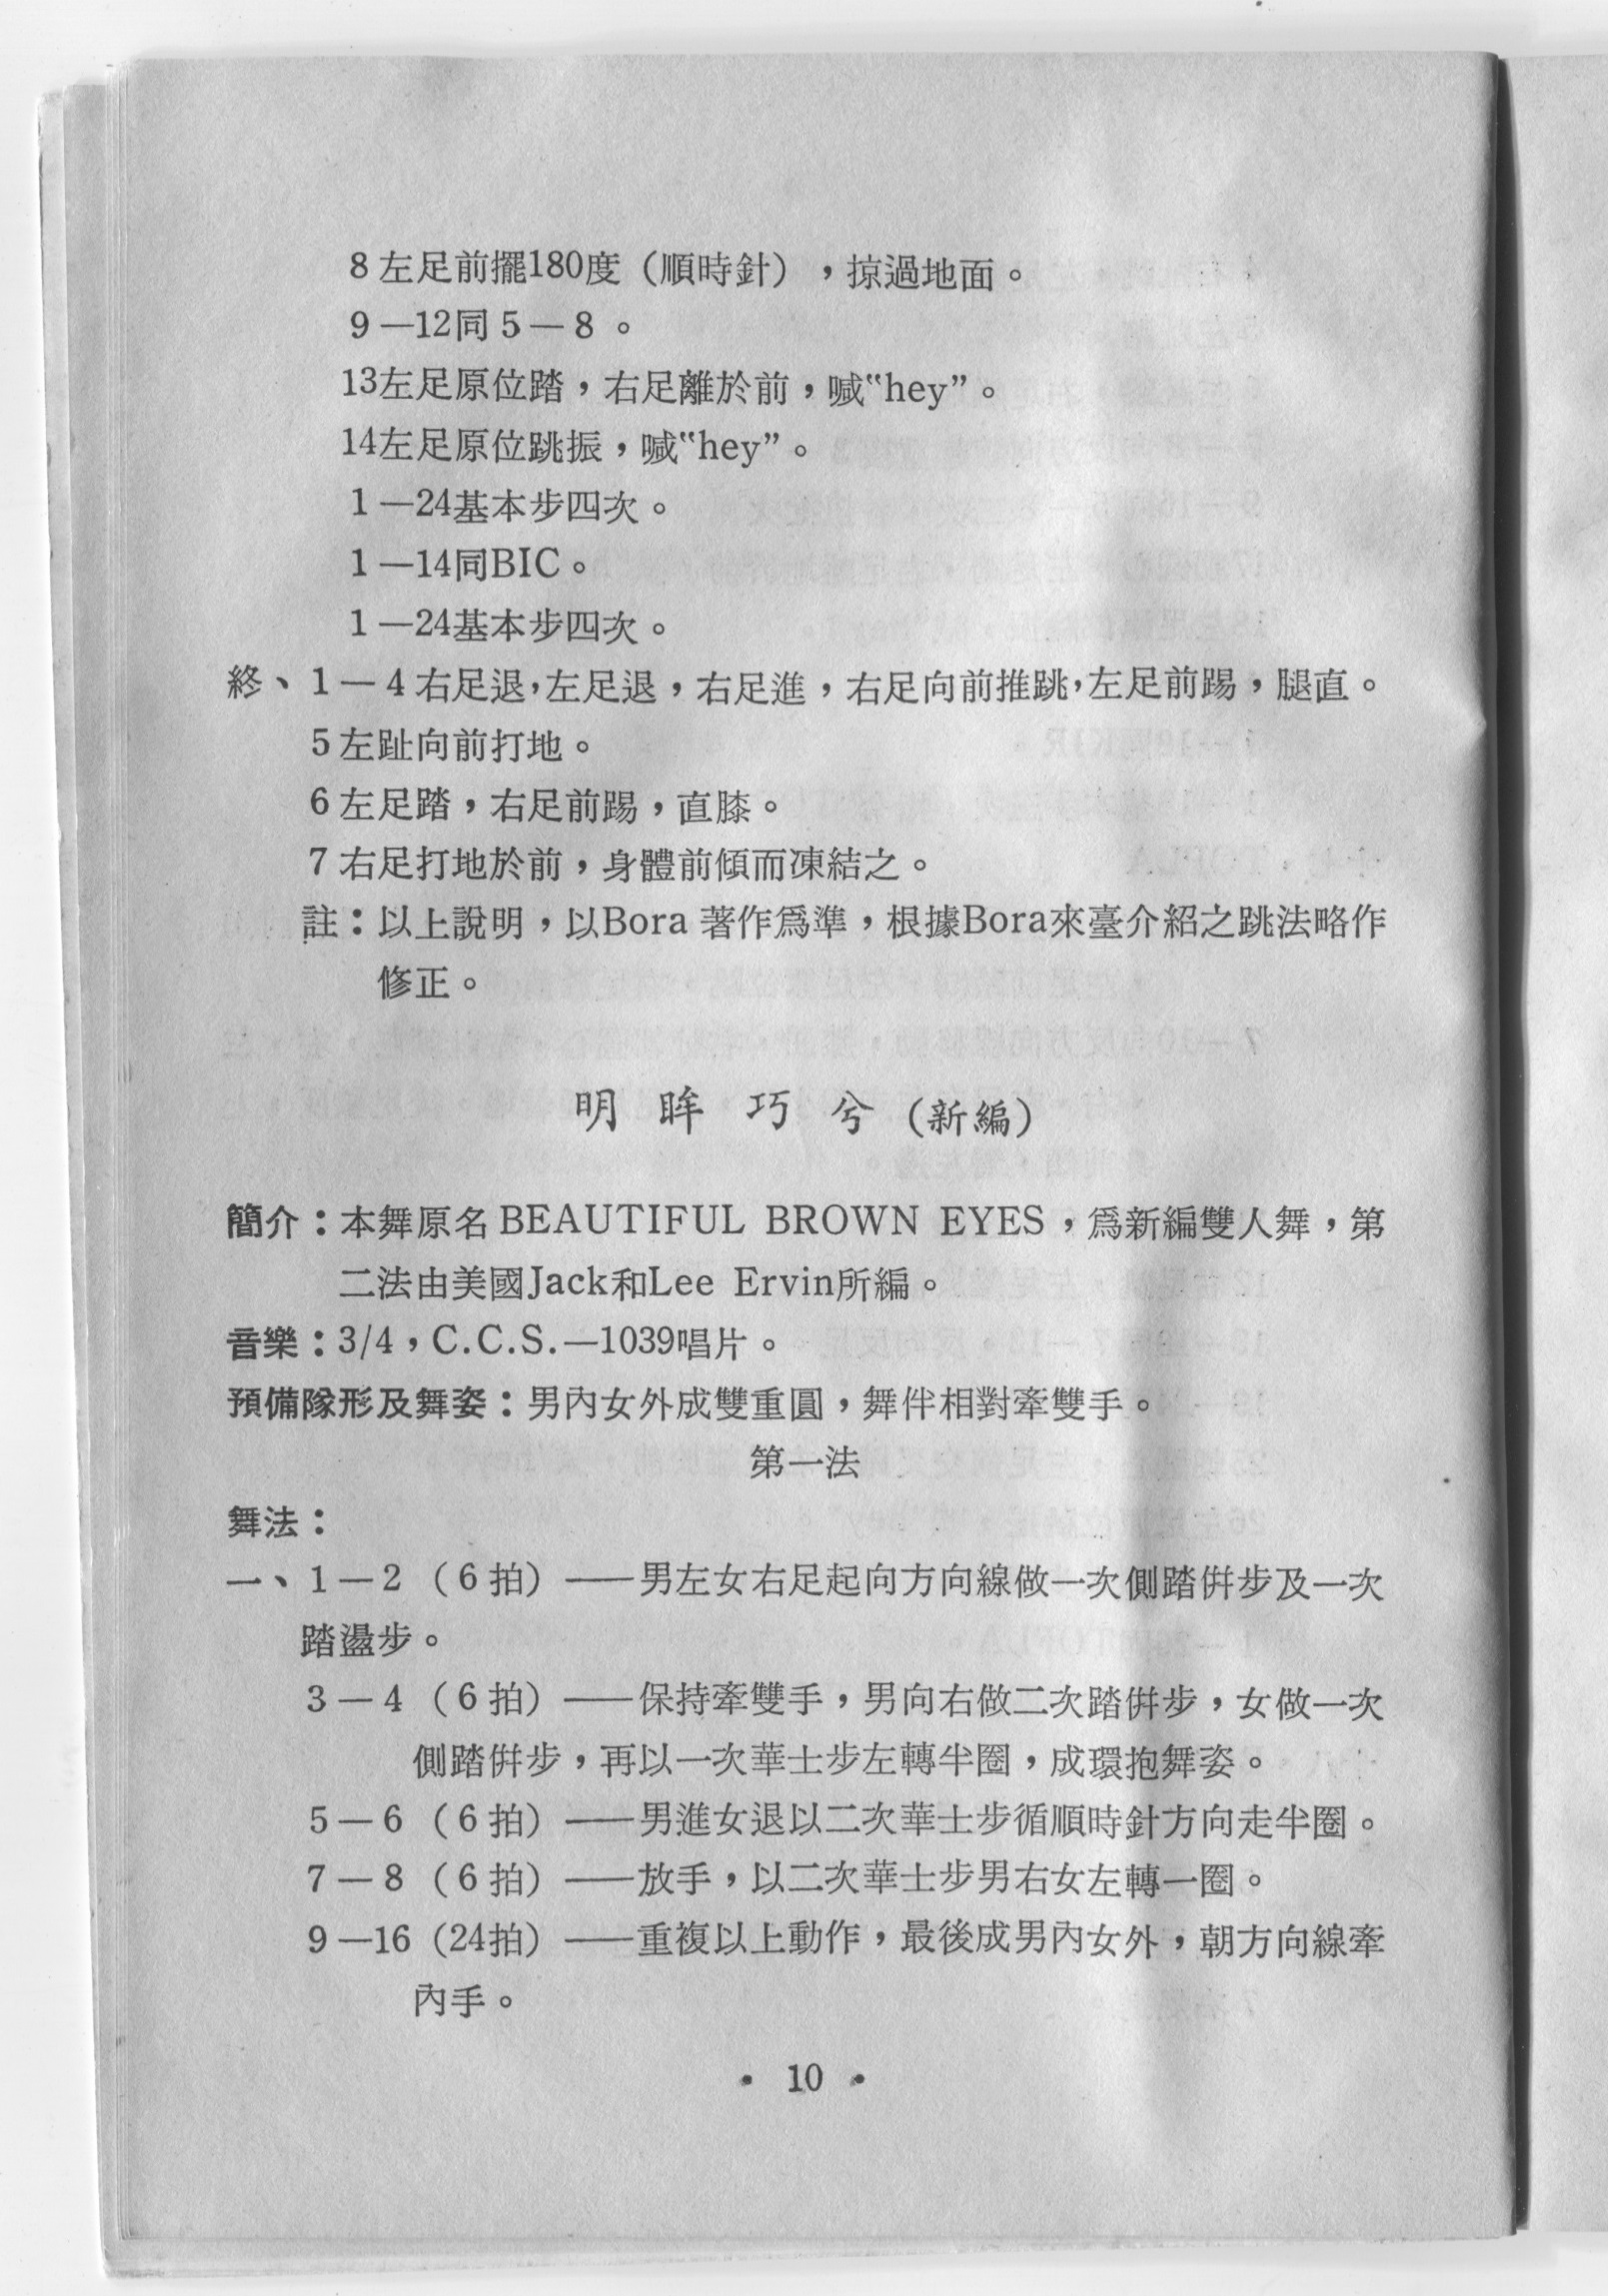 8左足前擺180度（順時針），掠過地面。
9—12同5—8。
13左足原位踏，右足離於前，喊“hey”。
14左足原位跳振，喊“hey”。
1—24基本步四次。
1—14同BIC。
1—24基本步四次。
終、1—4右足退，左足退，右足進，右足向前推跳，左足前踢，腿直。
5左趾向前打地。
6左足踏，右足前踢，直膝。
7右足打地於前，身體前傾而凍結之。
註：以上說明，以Bora著作爲準，根據Bora來臺介紹之跳法略作
修正。
明眸巧兮（新編）
簡介：本舞原名BEAUTIFUL BROWN EYES，爲新編雙人舞，第
二法由美國Jack和Lee Ervin所編。
音樂：3/4，C.C.S.—1039唱片。
預備隊形及舞姿：男內女外成雙重圓，舞伴相對牽雙手。
第一法
舞法：
一、1—2（6拍）——男左女右足起向方向線做一次側踏併步及一次
踏盪步。
3—4（6拍）——保持牽雙手，男向右做二次踏併步，女做一次
側踏併步，再以一次華士步左轉半圈，成環抱舞姿。
5—6（6拍）——男進女退以二次華士步循順時針方向走半圈。
7—8（6拍）——放手，以二次華士步男右女左轉一圈。
9—16（24拍）——重複以上動作，最後成男內女外，朝方向線牽
內手。
• 10 •